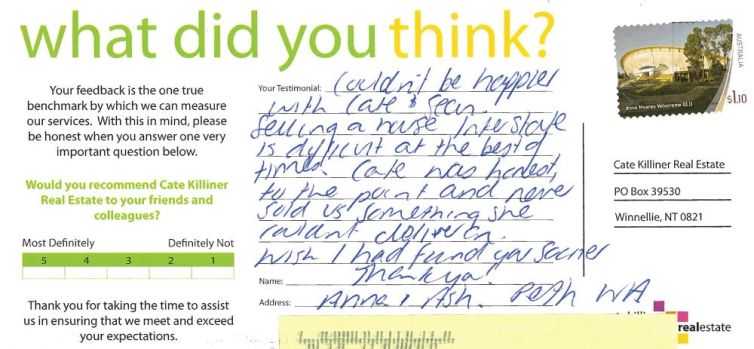 what did you think?
Your feedback is the one true
benchmark by which we can measure
our services. With this in mind, please
be honest when you answer one very
important question below.
Would you recommend Cate Killiner
Real Estate to your friends and
colleagues?
Most Definitely Definitely Not
5 4 3 2 1
Thank you for taking the time to assist
us in ensuring that we meet and exceed
your expectations.
Your Testimonial: Couldn't be happier
with Cate & Sean.
Selling a house Interstate
is difficult at the best of
times. Cate was honest,
to the point and never
sold us something she
couldn't deliver on.
Wish I had found you sooner
Thankyou!
Name:
Address: Anna & Ash. Perth WA
AUSTRALIA
Anna Meares Velodrome QLD
$1.10
Cate Killiner Real Estate
PO Box 39530
Winnellie, NT 0821
realestate